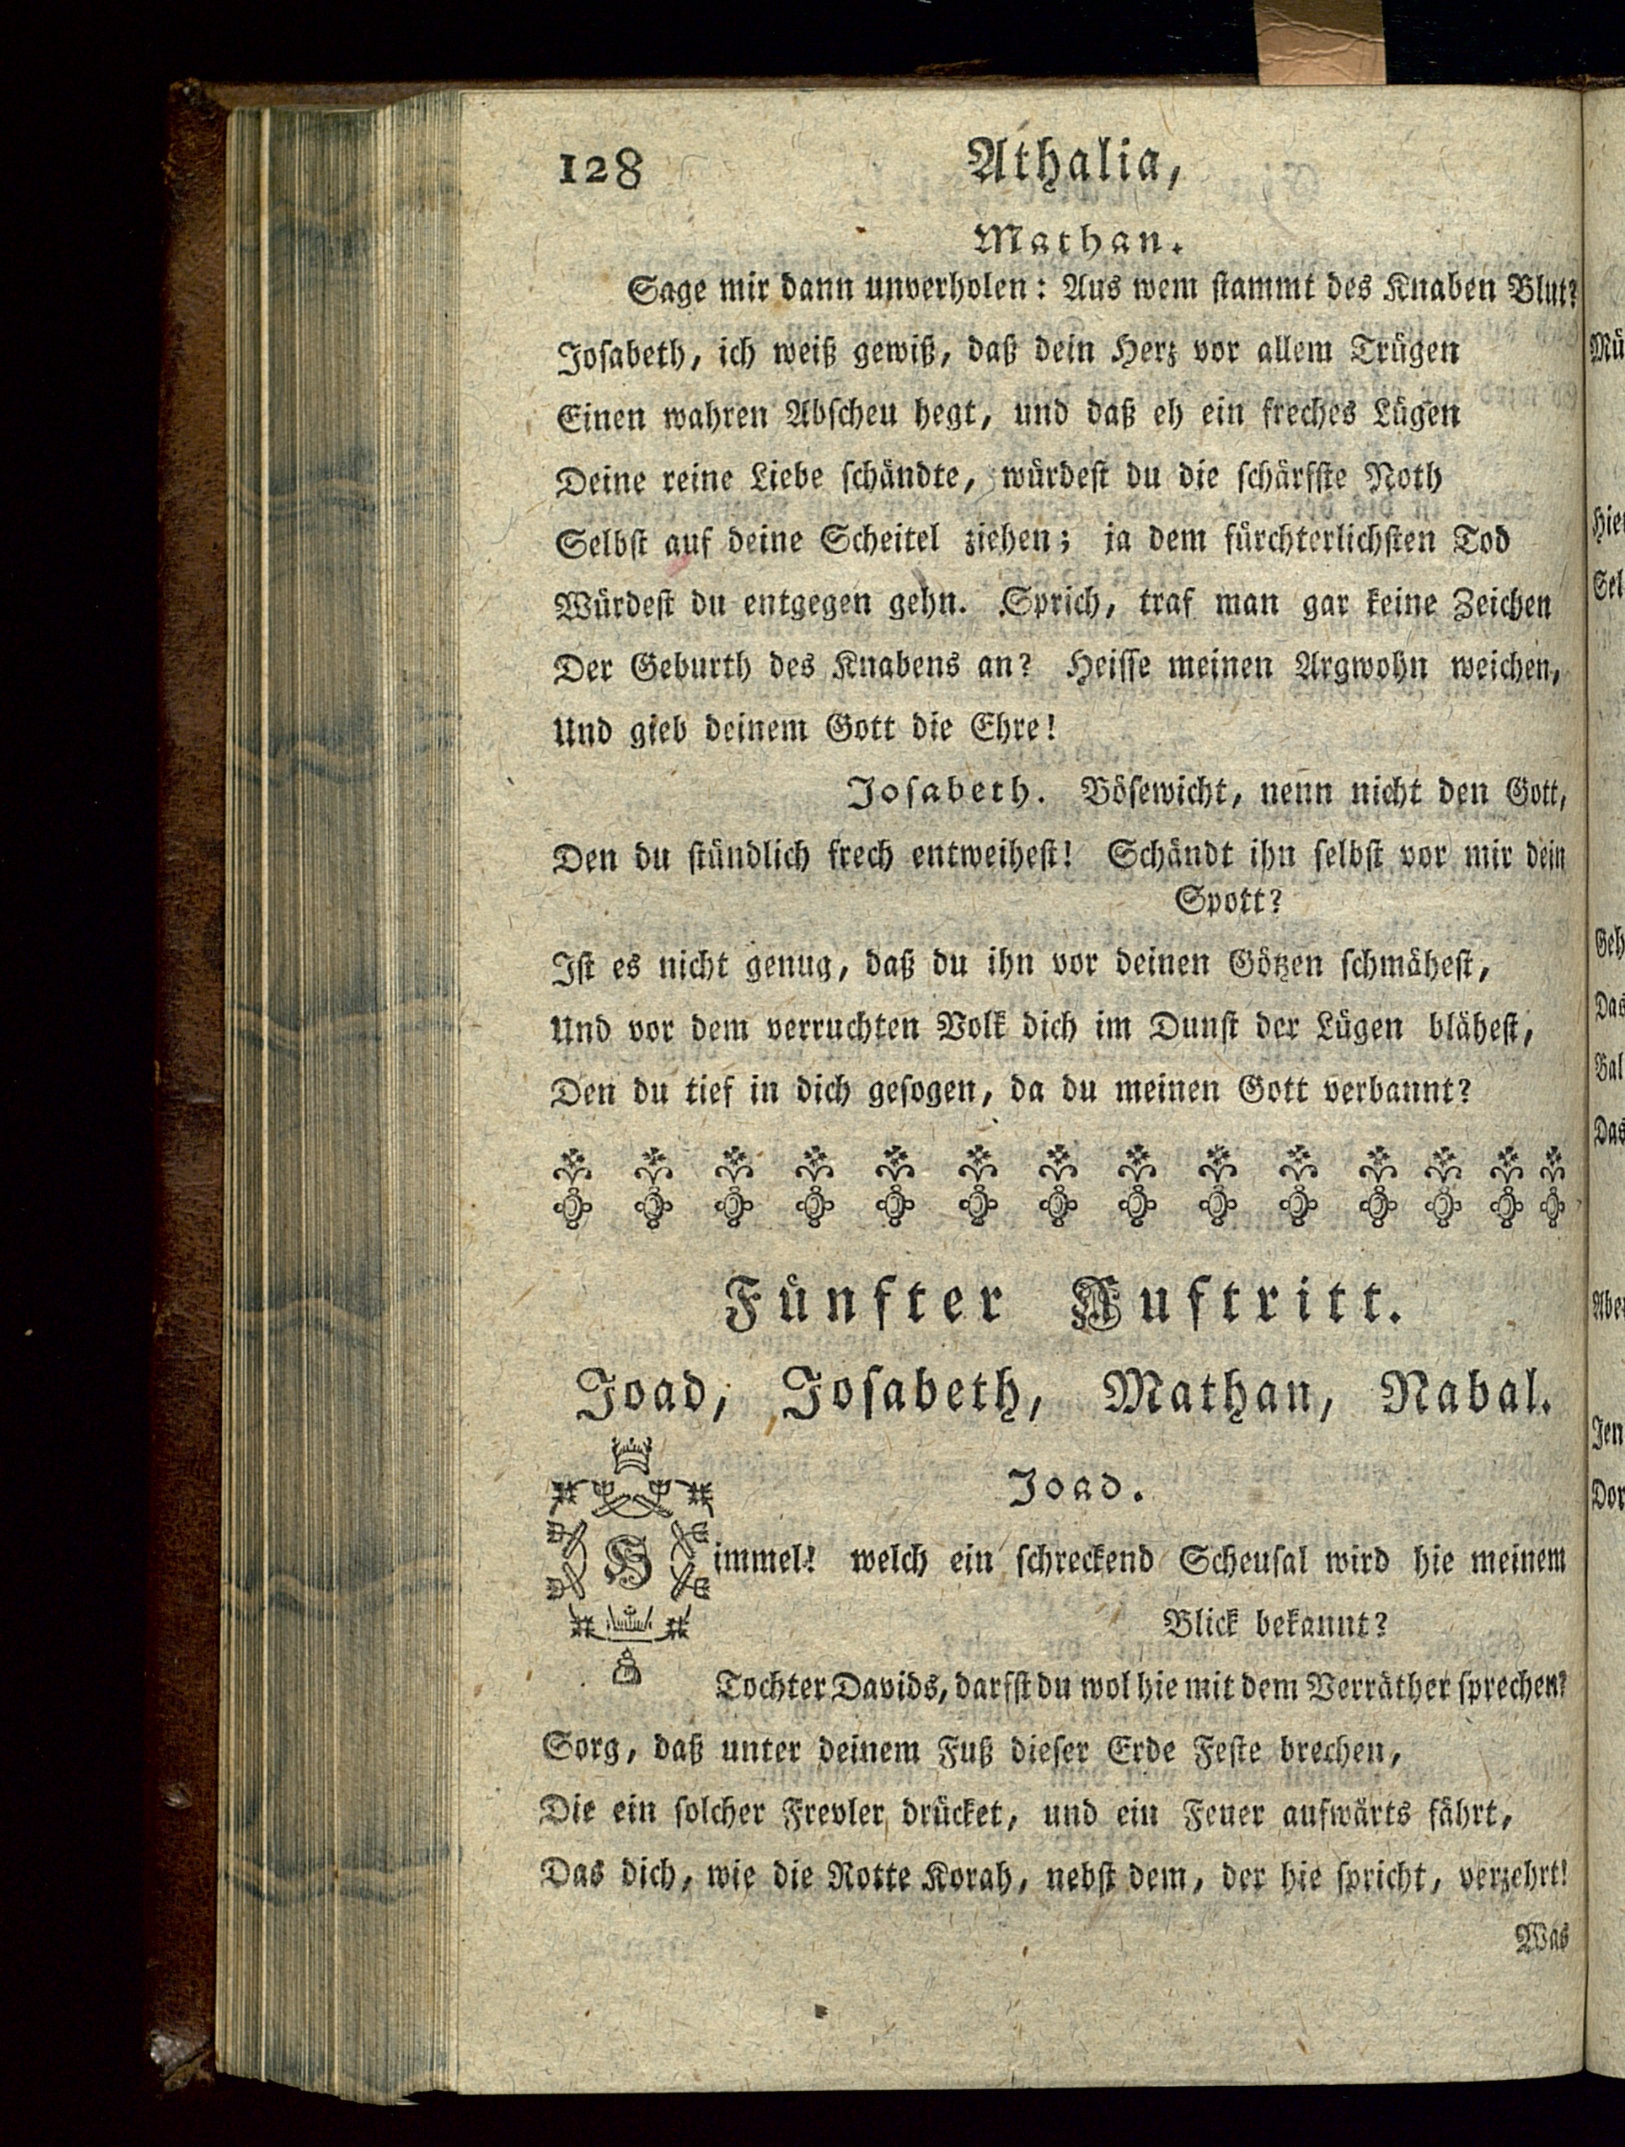 128 Athalia,
Mathan.
Sage mir dann unverholen: Aus wem stammt des Knaben Blut?
Josabeth, ich weiß gewiß, daß dein Herz vor allem Trügen
Einen wahren Abscheu hegt, und daß eh ein freches Lügen
Deine reine Liebe schändte, würdest du die schärfste Noth
Selbst auf deine Scheitel ziehen; ja dem fürchterlichsten Tod
Würdest du entgegen gehn. Sprich, traf man gar keine Zeichen
Der Geburth des Knabens an? Heisse meinen Argwohn weichen,
Und gieb deinem Gott die Ehre!
Josabeth. Bösewicht, nenn nicht den Gott,
Den du stündlich frech entweihest! Schändt ihn selbst vor mir dein
Spott?
Ist es nicht genug, daß du ihn vor deinen Götzen schmähest,
Und vor dem verruchten Volk dich im Dunst der Lügen blähest,
Den du tief in dich gesogen, da du meinen Gott verbannt?
Fünfter Auftritt.
Joad, Josabeth, Mathan, Nabal.
Joad.
Himmel! welch ein schreckend Scheusal wird hie meinem
Blick bekannt?
Tochter Davids, darfst du wol hie mit dem Verräther sprechen?
Sorg, daß unter deinem Fuß dieser Erde Feste brechen,
Die ein solcher Frevler drücket, und ein Feuer aufwärts fährt,
Das dich, wie die Rotte Korah, nebst dem, der hie spricht, verzehrt!
Was